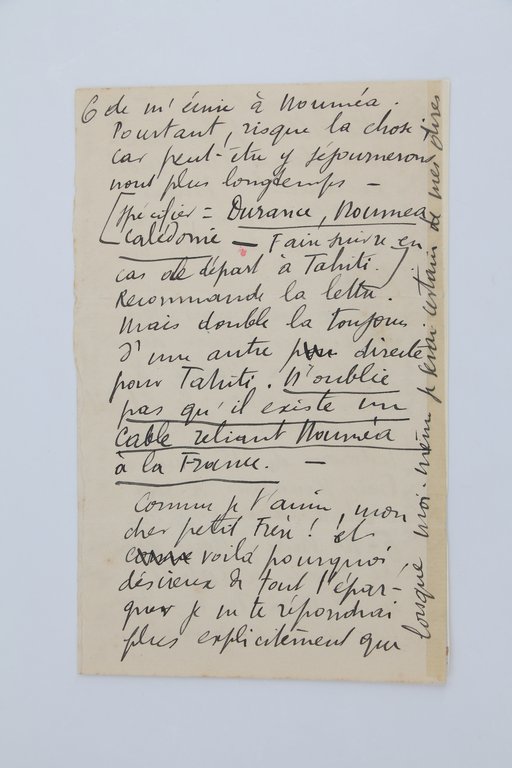 6 de m'écrire à Nouméa.
Pourtant, risque la chose
car peut-être y séjournerons
nous plus longtemps —
[spécifier = Durance, Nouméa
Calédonie — Faire suivre en
cas de départ à Tahiti.]
Recommande la lettre.
Mais double la toujours
d'une autre directe
pour Tahiti. N'oublie
pas qu'il existe un
Cable reliant Nouméa
à la France. —
Comme je t'aime, mon
cher petit Frère! et
voilà pourquoi,
désireux de tout t'épar-
gner je ne te répondrai
plus explicitement que
lorsque moi-même je serai certain de mes dires